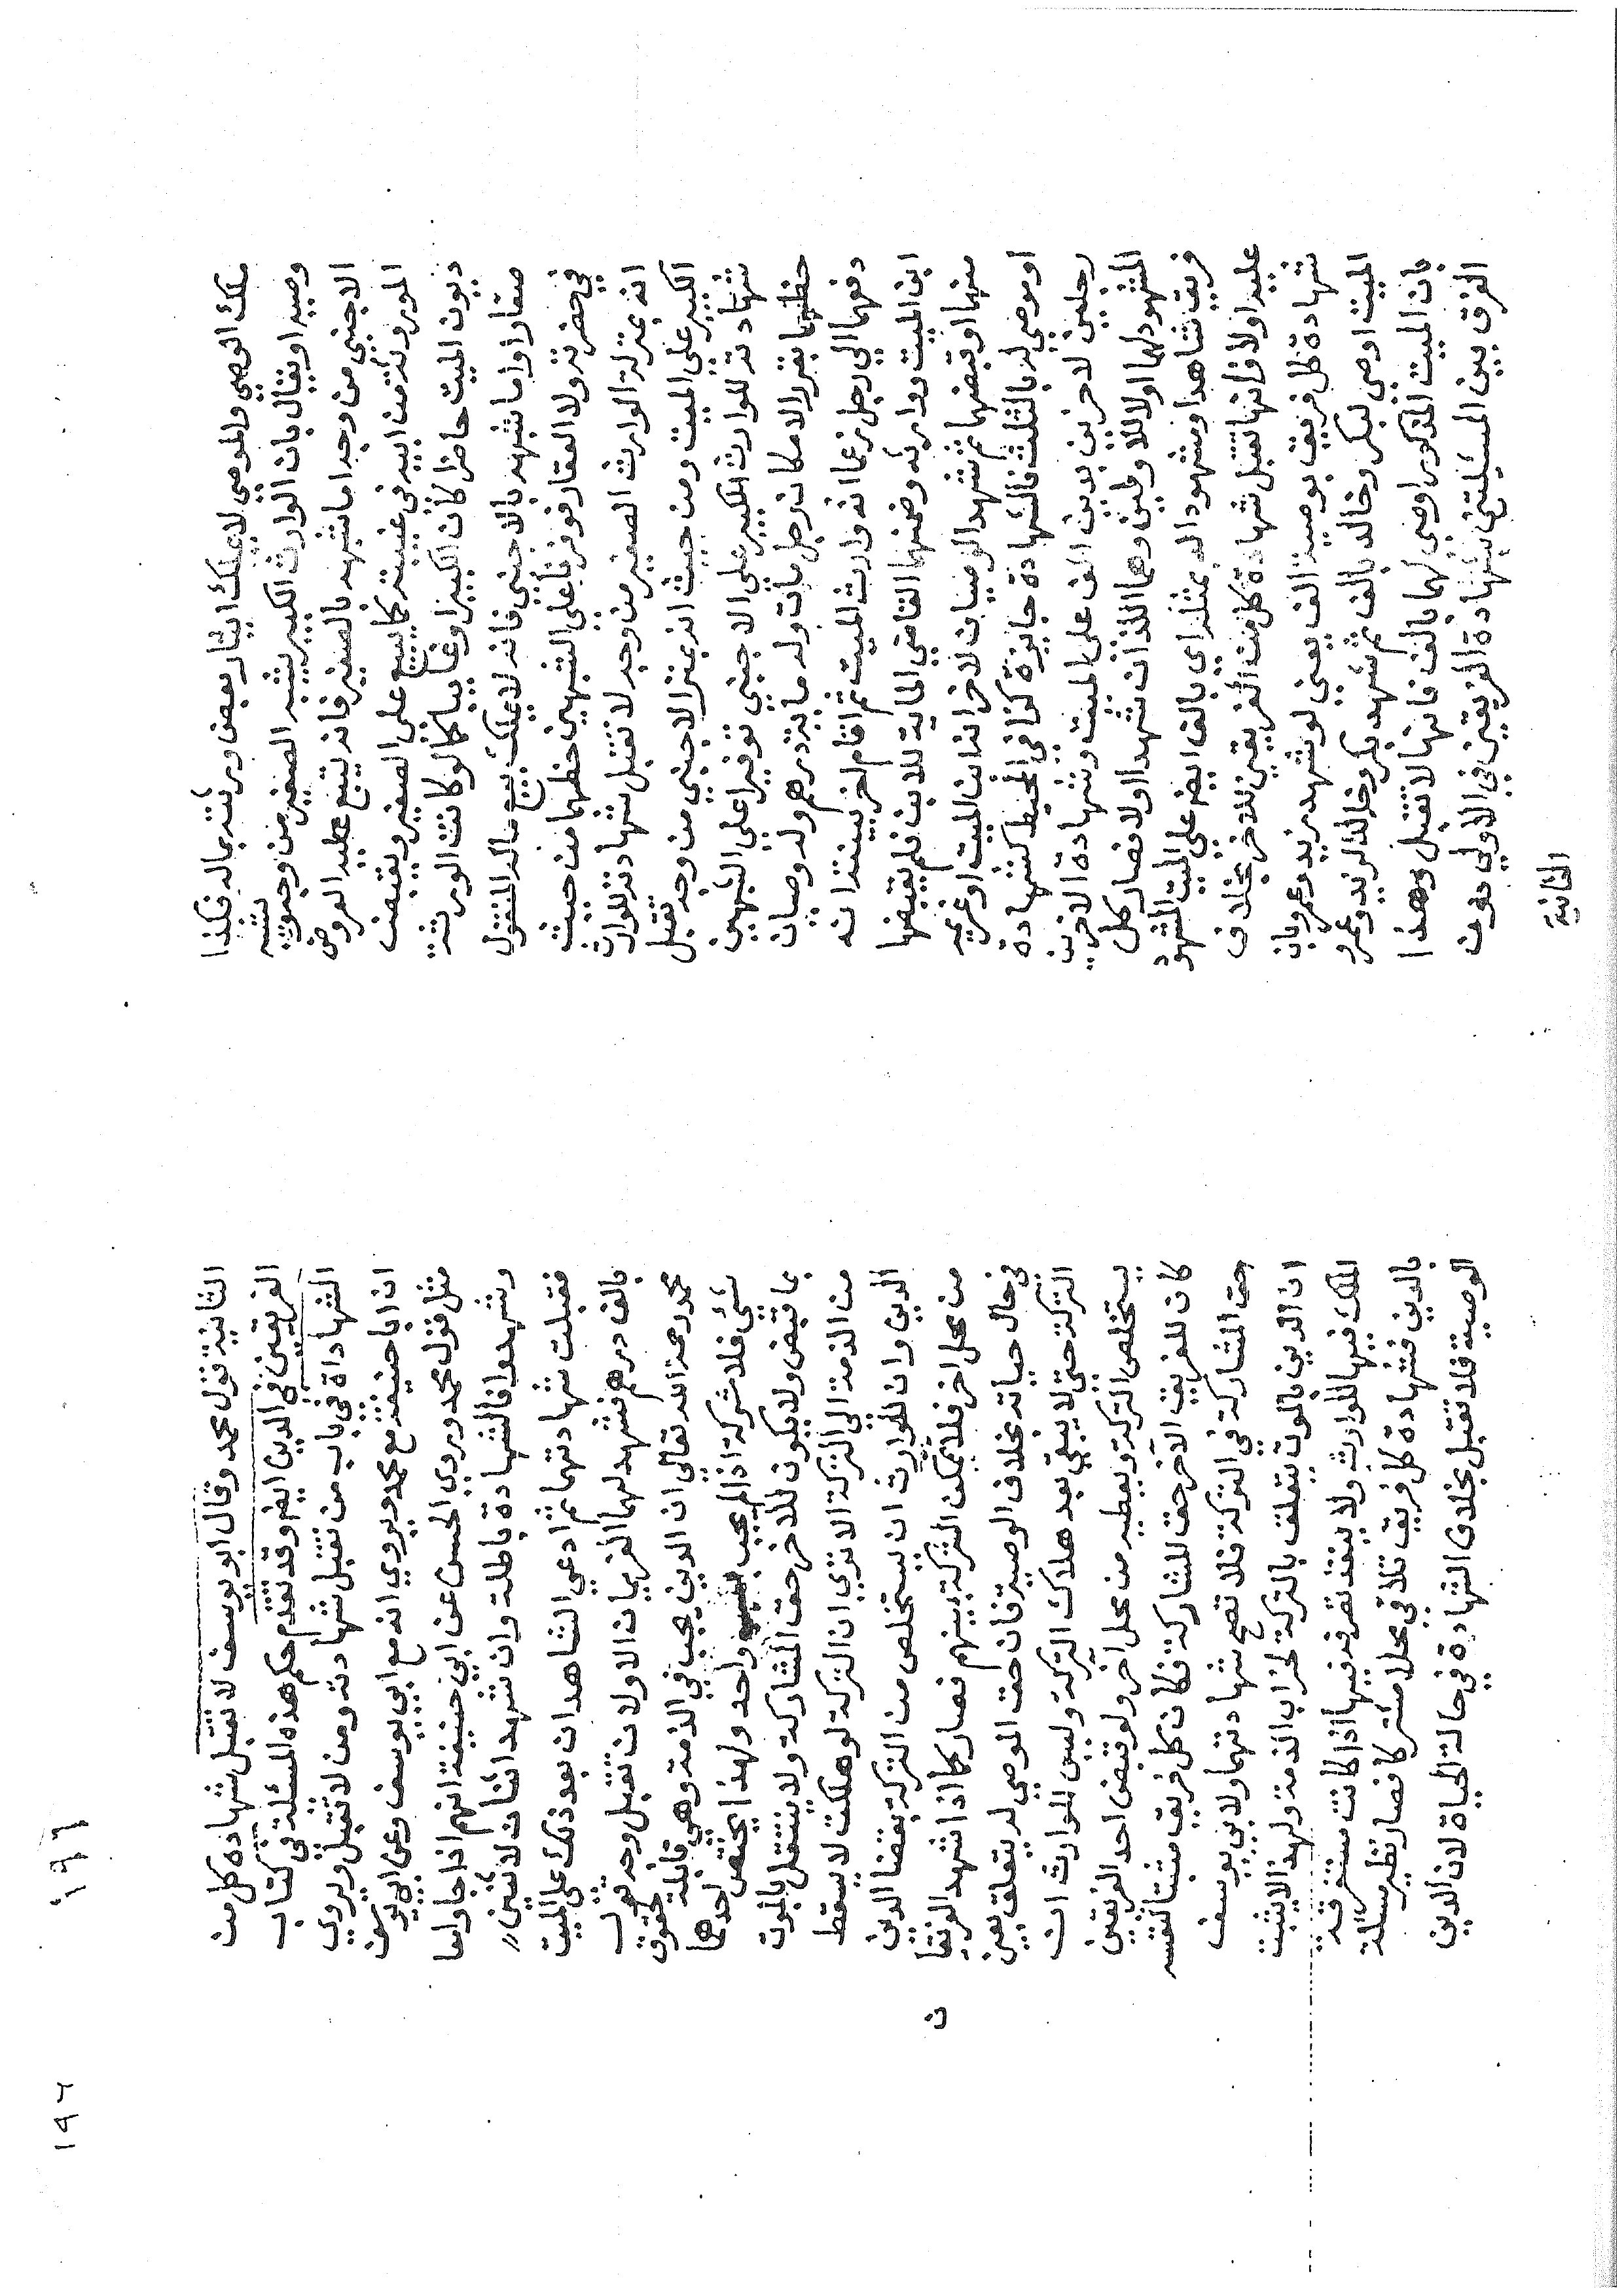 ملك الوصي والموصي لا يملك ايثار بعض ورثته بماله فكذا
وصيه او يقال بان الوارث الكبير يشبه الصغير من وجه ويشبه
الاجنبي من وجه اما شبهه بالصغير فانه يتبع عليه العروض
الموروثة من ابيه في غيبته كما يبيع على الصغير ويقبض
ديون الميت حاضرا كان الكبير او غايبا كما لو كانت الورثة
صغارا واما شبهه بالاجنبي فانه لا يملك بيع ماله المنقول
في حضرته ولا العقار فوفرنا على الشبهين حظهما من حيث
انه بمنزلة الوارث الصغير من وجه لا تقبل شهادته للوارث
الكبير على الميت ومن حيث انه بمنزلة الاجنبي من وجه تقبل
شهادته للوارث الكبير على الاجنبي توفيرا على الشبهين
حظهما بقدر الامكان رجل مات وله مايتا درهم وله وصيان
دفعهما الى رجل زعما انه وارث الميت ثم اقام اخر بينة انه
ابن الميت دون وضمنهما القاضي المالية للابن فلم يقبضها
منهما او قبضهما ثم شهد الوصيان لاخر انه ابن الميت او غريمه
او موصى له بالثلث فالشهادة جايزة كذا في المحيط كشهادة
رجلين لاخرين بدين الف على الميت وشهادة الاخرين
المشهود لهما اولا للاولين وهما اللذان شهدا اولا فصار كل
فريق شاهدا ومشهودا له بمثله اي بالف ايضا على الميت المشهود
عليه اولا فانها تقبل شهادة كل من الفريقين للاخر بخلاف
شهادة كل فريق بوصية الف يعني لو شهد زيد وعمرو بان
الميت اوصى لبكر وخالد بالف ثم شهد بكر وخالد لزيد وعمرو
بان الميت المذكور اوصى لهما بالف فانها لا تقبل وهذا
الفرق بين المسئلتين شهادة الفريقين في الاولى دون
الثانية
الثانية قول محمد وقال ابو يوسف لا تقبل شهادة كل من
الفريقين في الدين ايضا وقد تقدم حكم هذه المسئلة في كتاب
الشهادة في باب من تقبل شهادته ومن لا تقبل ويروى
ان ابا حنيفة مع محمد ويروى انه مع ابي يوسف وعن ابي يوسف
مثل قول محمد وروى الحسن عن ابي حنيفة انهم اذا جاوا معا
وشهدوا فالشهادة باطلة وان شهد اثنان لاثنين
فقبلت شهادتهما ثم ادعى الشاهدان بعد ذلك على الميت
بالف درهم فشهد لهما الغريمان الاولان تقبل وجه قول
محمد رحمة الله تعالى ان الدين يجب في الذمة وهي قابلة لحقوق
شتى فلا شركة اذا لم يجب بسبب واحد ولهذا يختص احدهما
بما قبض ولا يكون للاخر حق المشاركة ولا ينتقل بالموت
من الذمة الى التركة الا ترى ان التركة لو هلكت لا يسقط
الدين وان للوارث ان يستخلص من التركة بقضا الدين
من محل اخر فلا تمكن الشركة بينهم فصار كما اذا شهد الفريقان
في حال حياته بخلاف الوصية فان حق الموصى له يتعلق بعين
التركة حتى لا يبقى بعد هلاك التركة وليس للوارث ان
يستخلص التركة ويعطيه من محل اخر ولو قبض احد الفريقين
كان للفريق الاخر حق المشاركة فكان كل فريق مثبتا لنفسه
حق المشاركة في التركة فلا تصح شهادتهما ولابي يوسف
ان الدين بالموت يتعلق بالتركة لخراب الذمة ولهذا لا يثبت
الملك فيها للوارث ولا ينفذ تصرفه فيها اذا كانت مستغرقة
بالدين فشهادة كل فريق تلاقي محلا مشتركا فصار نظير مسئلة
الوصية فلا تقبل بخلاف الشهادة في حالة الحياة لان الدين
ن
١٩٦
١٩٦